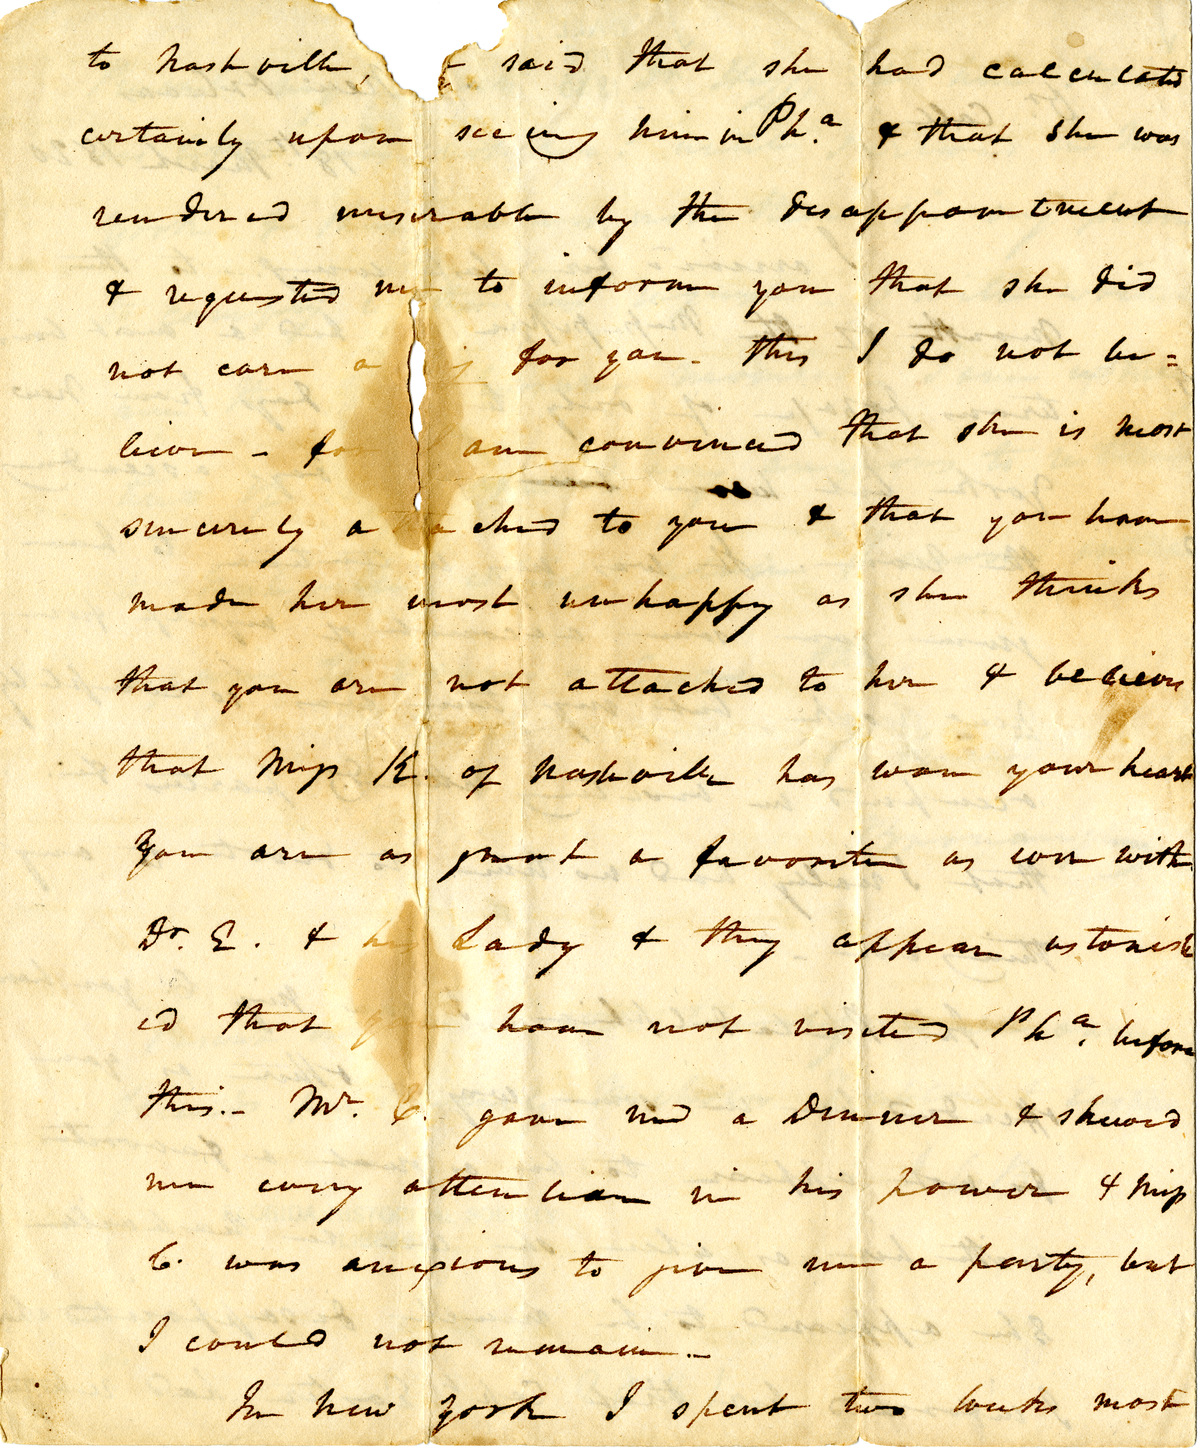 to Nashville, said that she had calculated
certainly upon seeing him in Pha. & that she was
rendered miserable by the disappointment
& requested me to inform you that she did
not care a fig for you - this I do not be=
lieve - for I am convinced that she is most
sincerely attached to you & that you have
made her most unhappy as she thinks
that you are not attached to her & believes
that Miss K. of Nashville has won your heart
You are as great a favorite as ever with
Dr. E. & his Lady & they appear astonish
ed that you have not visited Pha. before
this. - Mr. C. gave me a Dinner & shewed
me every attention in his power & Miss
C. was anxious to give me a party, but
I could not remain. -
In New York I spent two weeks most